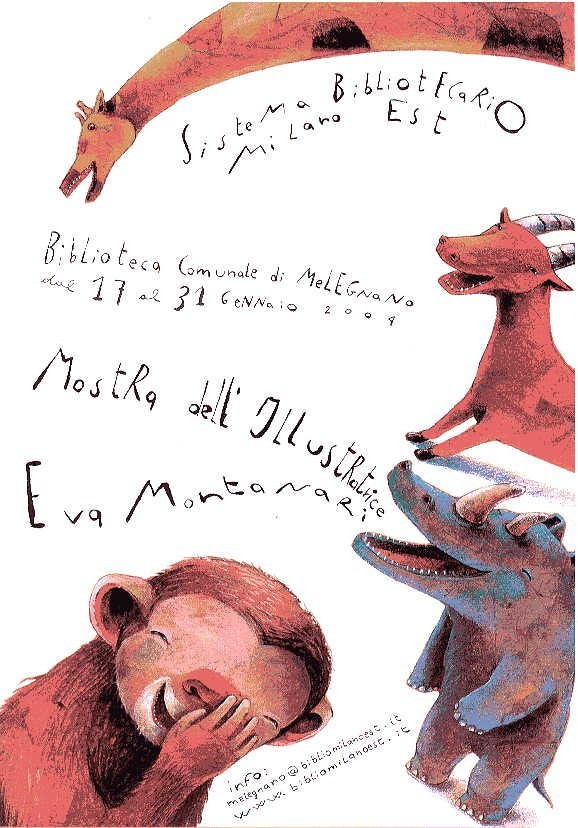 Sistema BibliotecaRiO
MiLano Est
Biblioteca Comunale di MeLEGNaNo
dal 17 al 31 GeNNaio 2009
MostRa dell'ILLustRatrice
Eva MontaNaRi
info:
melegnano@bibliomilanoest.it
www.bibliomilanoest.it